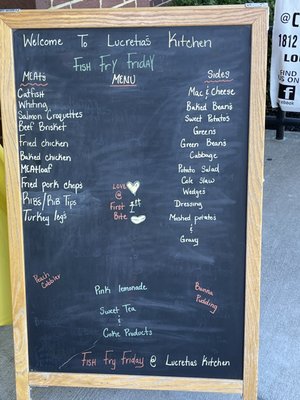 Welcome To Lucretia's Kitchen
Fish Fry Friday
MENU
MEATS
Catfish
Whiting
Salmon Croquettes
Beef Brisket
Fried chicken
Baked chicken
MEATloaf
Fried pork chops
Ribs/Rib Tips
Turkey legs
Sides
Mac & Cheese
Baked Beans
Sweet Potatos
Greens
Green Beans
Cabbage
Potato Salad
Cole Slaw
Wedges
Dressing
Mashed potatos
&
Gravy
LOVE
@
First 1st
Bite
Peach
Cobbler
Pink lemonade
Sweet Tea
&
Coke Products
Banana
Pudding
Fish Fry Friday @ Lucretias Kitchen
@C
1812
LO
FIND
US ON
f
FACEB